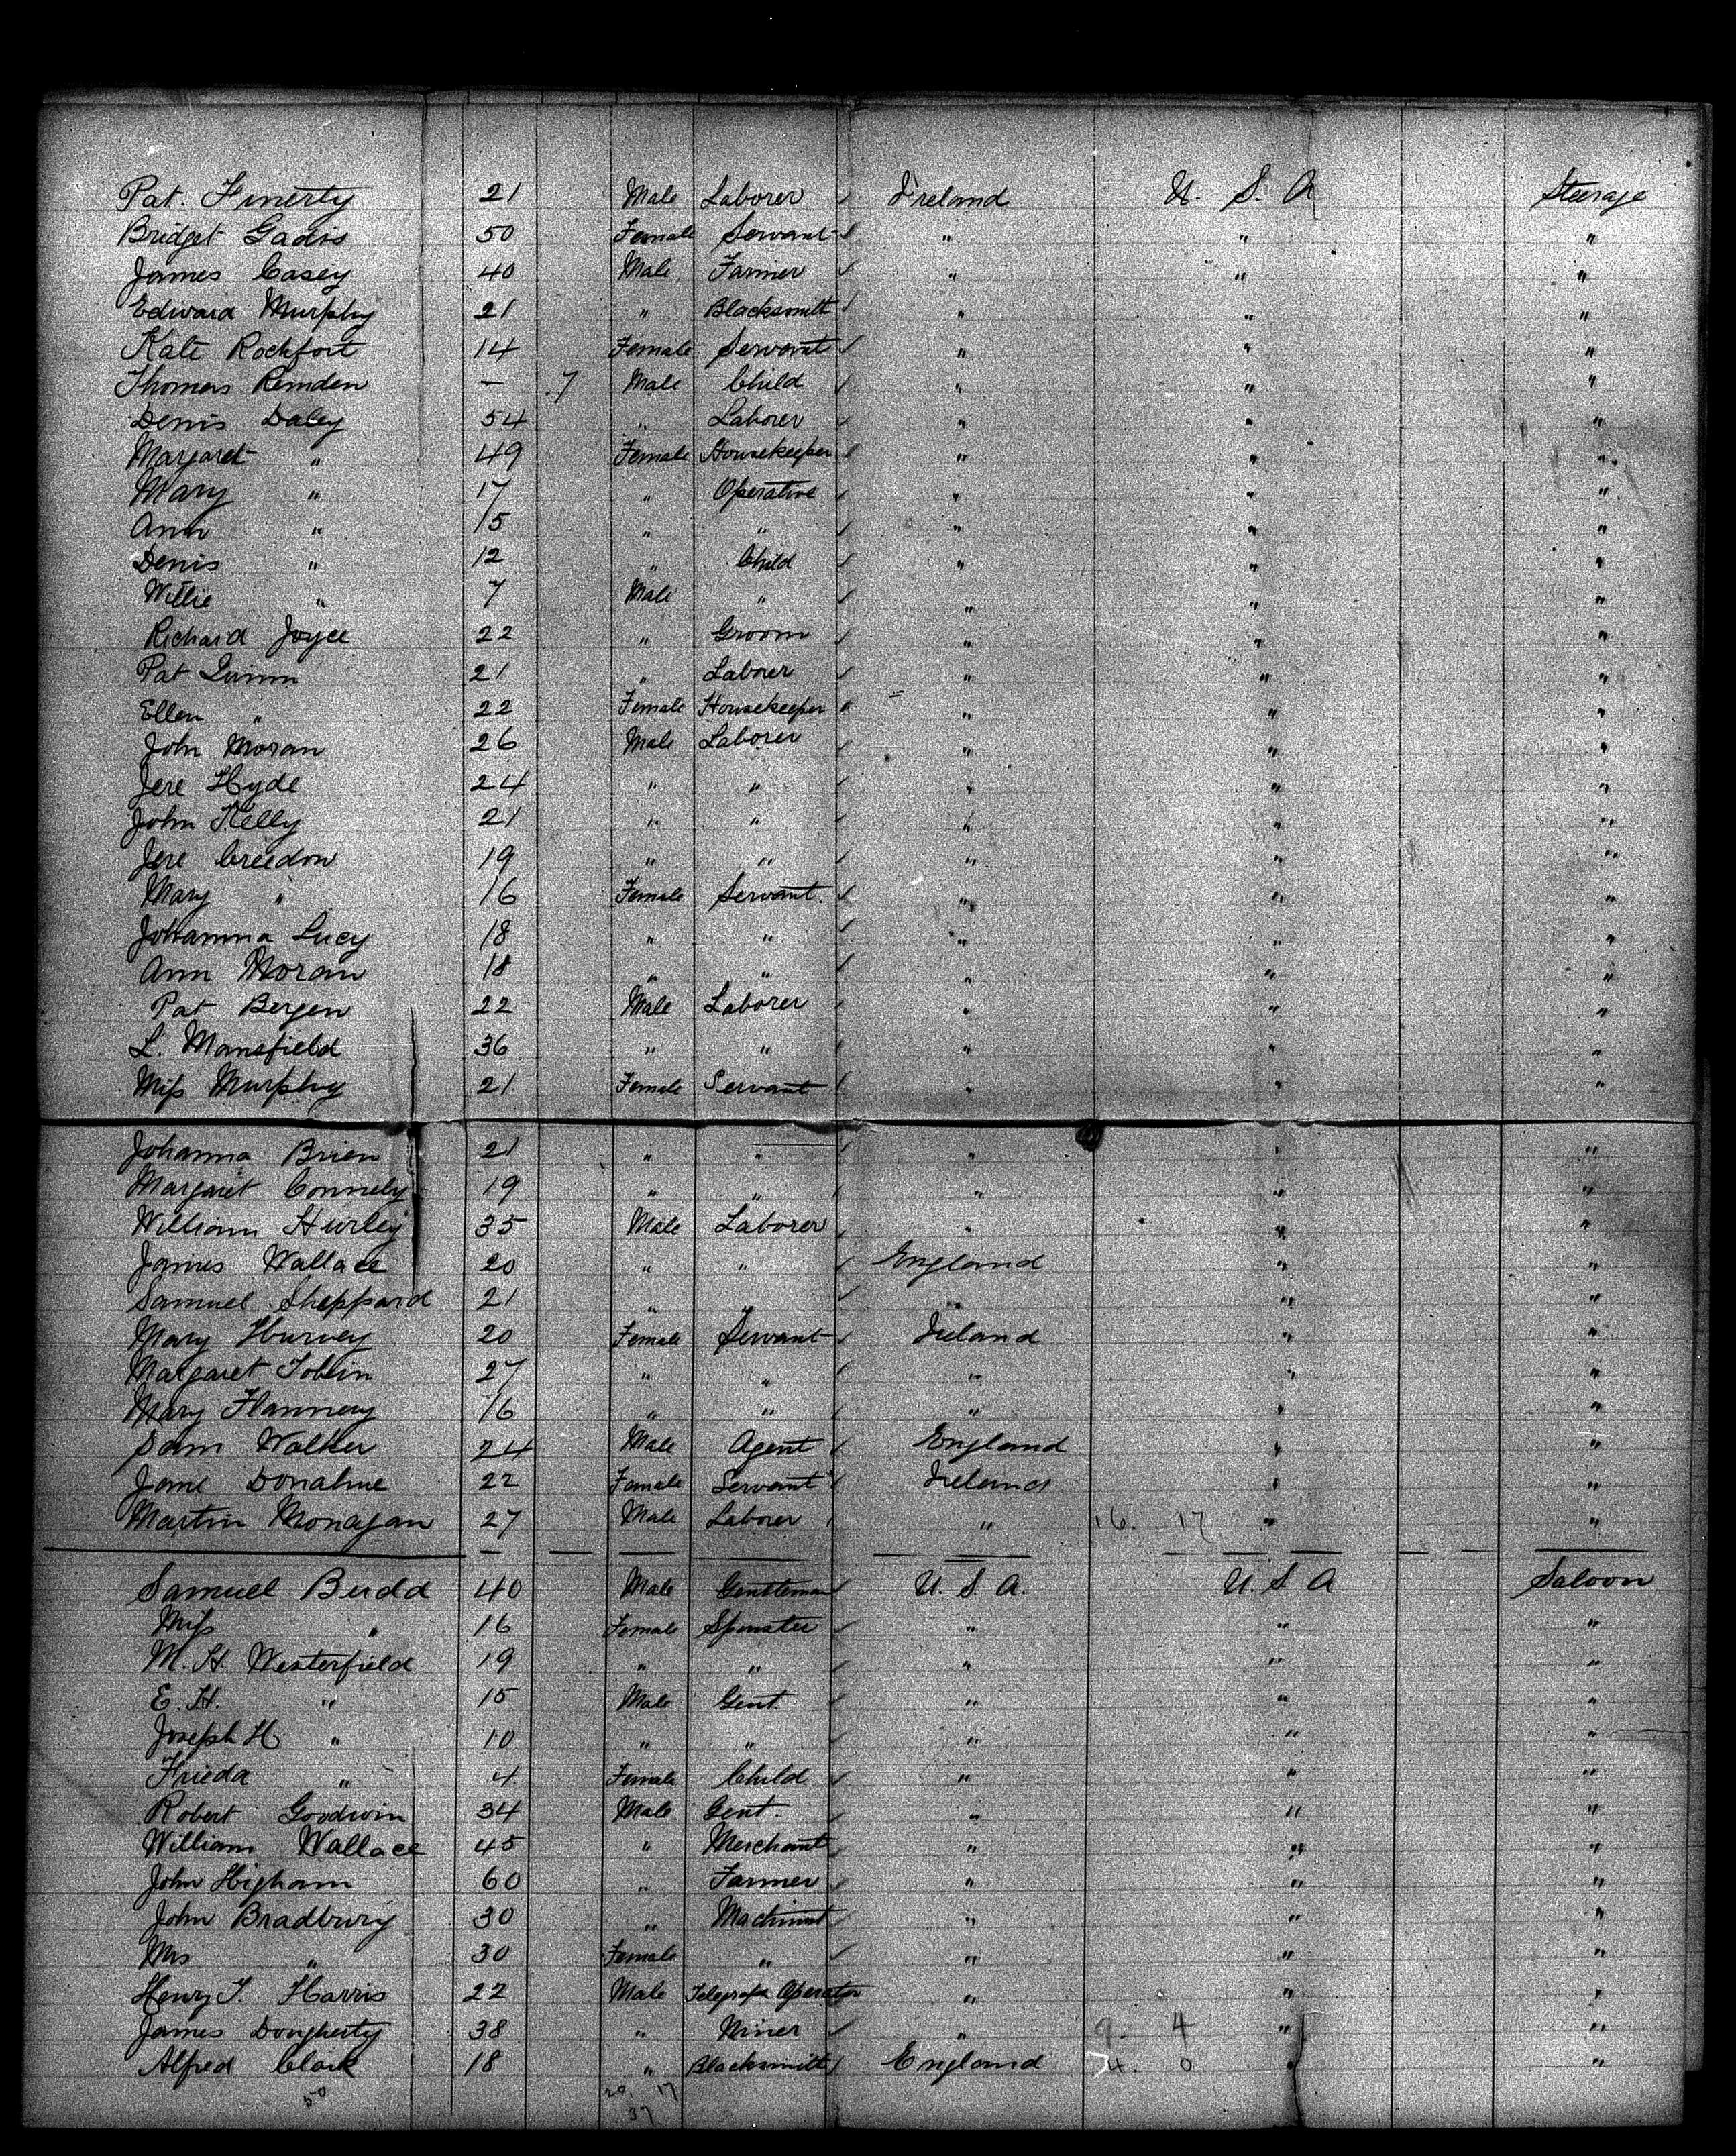 Pat. Finerty 21 Male Laborer ✓ Ireland U. S. A Steerage
Bridget Gadis 50 Female Servant ✓ " " "
James Casey 40 Male Farmer ✓ " " "
Edward Murphy 21 " Blacksmith ✓ " " "
Kate Rockfort 14 Female Servant ✓ " " "
Thomas Remden — 7 Male Child ✓ " " "
Denis Daley 54 " Laborer ✓ " " "
Margaret " 49 Female Housekeeper ✓ " " "
Mary " 17 " Operative ✓ " " "
Ann " 15 " " ✓ " " "
Denis " 12 " Child ✓ " " "
Willie " 7 Male " ✓ " " "
Richard Joyce 22 " Groom ✓ " " "
Pat Quinn 21 " Laborer ✓ " " "
Ellen " 22 Female Housekeeper " " " "
John Moran 26 Male Laborer ✓ " " "
Jere Hyde 24 " " ✓ " " "
John Kelly 21 " " ✓ " " "
Jere Creedon 19 " " ✓ " " "
Mary " 16 Female Servant. ✓ " " "
Johanna Lucy 18 " " ✓ " " "
Ann Moran 18 " " ✓ " " "
Pat Bergen 22 Male Laborer ✓ " " "
L. Mansfield 36 " " ✓ " " "
Miss Murphy 21 Female Servant ✓ " " "
Johanna Brien 21 " " ✓ " " "
Margaret Connely 19 " " ✓ " " "
William Hurley 35 Male Laborer ✓ " " "
James Wallace 20 " " ✓ England " "
Samuel Sheppard 21 " " ✓ " " "
Mary Hurvey 20 Female Servant ✓ Ireland " "
Margaret Tobin 27 " " ✓ " " "
Mary Flannery 16 " " ✓ " " "
Sam Walker 24 Male Agent ✓ England " "
Jane Donahue 22 Female Servant ✓ Ireland " "
Martin Monagan 27 Male Laborer ✓ " 16. 17 " "
Samuel Budd 40 Male Gentleman ✓ U. S. A. U. S A Saloon
Miss " 16 Female Spinster ✓ " " "
M. H. Westerfield 19 " " ✓ " " "
E. H. " 15 Male Gent. ✓ " " "
Joseph H. " 10 " " ✓ " " "
Frieda " 4 Female Child ✓ " " "
Robert Goodwin 34 Male Gent. ✓ " " "
William Wallace 45 " Merchant ✓ " " "
John Higham 60 " Farmer ✓ " " "
John Bradbury 30 " Machinist ✓ " " "
Mrs " 30 Female " ✓ " " "
Henry J. Harris 22 Male Telegraph Operator " " "
James Dougherty 38 " Miner ✓ " 9. 4 " "
Alfred Clark 18 " Blacksmith ✓ England 4. 0 " "
50 20. 17
37